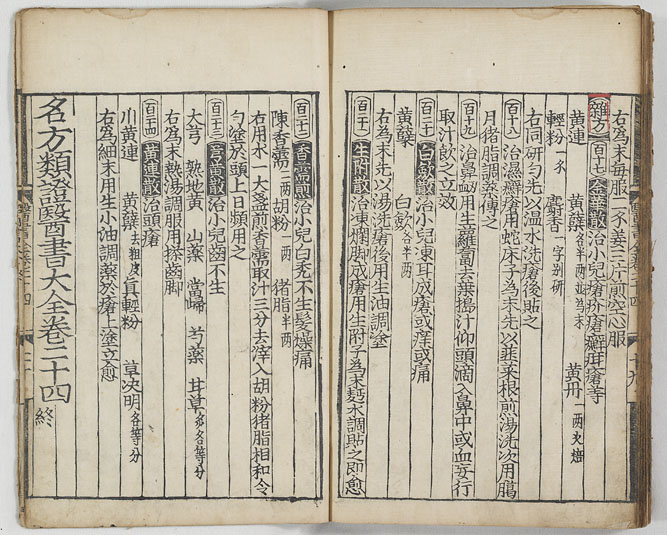 右為末每服一
姜三片煎空心服
雜方 百十七 金華散 治小兒瘡疥瘡癬
瘡等
黃連 黃蘗各半兩並為末 黃丹一兩火焙
輕粉一
麝香一字別研
右同研勻先以溫水洗瘡後貼之
百十八 治濕癬瘡用蛇床子為末先以韭菜根煎湯洗次用臈
月猪脂調藥傅之
百十九 治鼻衂用生蘿蔔去葉搗汁仰頭滴入鼻中或血妄行
取汁飲之立效
百二十 白歛散 治小兒凍耳成瘡或痒或痛
黃蘗 白歛各半兩
右為末先以湯洗瘡後用生油調塗
百二十一 生附散 治凍爛脚成瘡用生附子為末
水調貼之即愈
百二十二 香薷煎 治小兒白禿不生髮
痛
陳香薷二兩 胡粉一兩 猪脂半兩
右用水一大盞煎香薷取汁三分去滓入胡粉猪脂相和令
勻塗於頭上日頻用之
百二十三 芎黃散 治小兒齒不生
大芎 熟地黃 山藥 當歸 芍藥 甘草
各等分
右為末熱湯調服用擦齒脚
百二十四 黃連散 治頭瘡
川黃連 黃蘗去粗皮 真輕粉 草決明各等分
右為細末用生小油調藥於瘡上塗立愈
名方類證醫書大全卷二十四 終